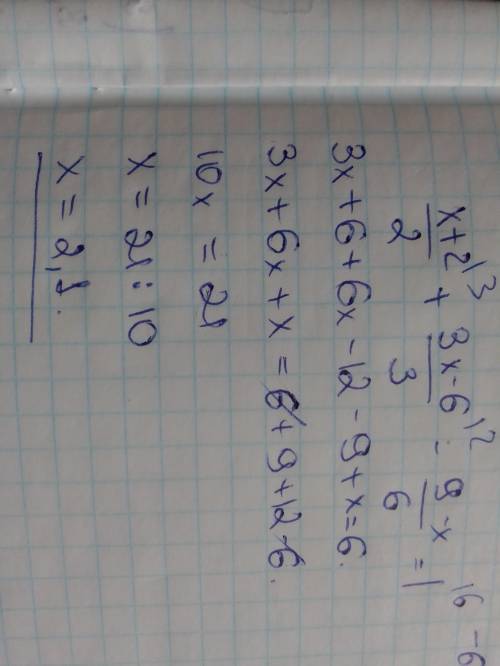 (x+2)/2 ^3 + (3x-6)/3 ^2 - (9-x)/6 = 1 ^6 -6
3x+6+6x-12-9+x=6.
3x+6x+x=6+9+12-6.
10x = 21
x = 21:10
x = 2,1.